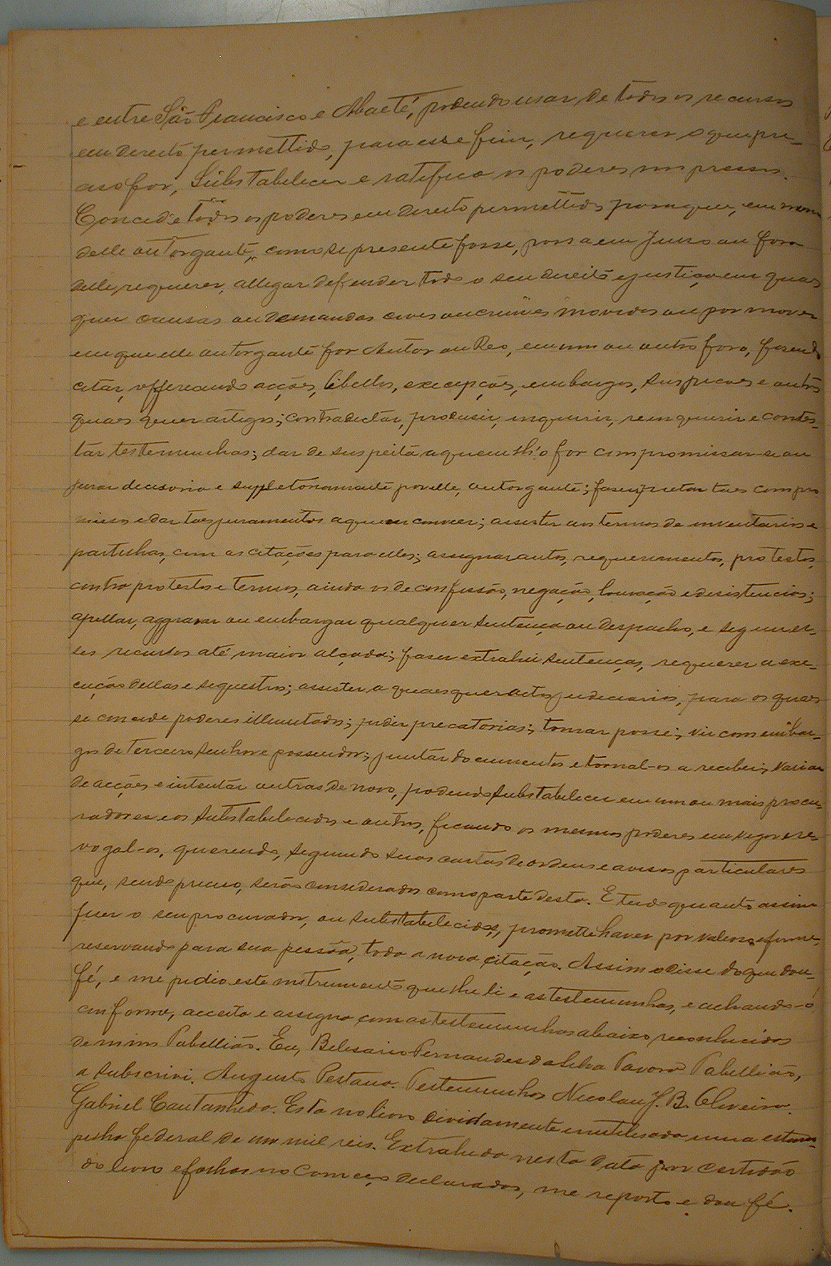 e entre São Francisco e Abaeté, podendo usar de todos os recursos
em direito permettido, para esse fim, requerer o que pre-
ciso for, Substabelecer e ratifica os poderes impressos.
Concede todos os poderes em direito permettidos para que, em nome
delle outorgante, como se presente fosse, possa em Juizo ou fora
delle, requerer, allegar defender todo o seu direito e justiça em quaes
quer causas ou demandas civeis ou crimes movidos ou por mover
em que elle outorgante for Autor ou Reo, em um ou outro foro, fazendo
citar, offerecendo acções, libellos, excepções, embargos, suspeicoes e outros
quaes quer artigos; contradictar, produsir, inquerir, reinquerir e contes-
tar testemunhas; dar de suspeito a quem lh'o for compromissar-se ou
jurar decisoria e suppletoriamente por elle, outorgante; fazer prestar taes compro
missos e dar taes juramentos a quem convier; assistir aos termos de inventarios e
partilhas, com as citações para elles; assignar autos, requerimentos, protestos,
contra protestos e termos, ainda os de confissão, negação, louvação e desistencias;
apellar, aggravar ou embargar qualquer sentença ou despacho, e seguir es-
ses recursos até maior alçada; fazer extrahir sentenças, requerer a exe-
cução dellas e sequestros; assistir a quaesquer actos judiciarios, para os quaes
se concede poderes illimitados; pedir precatorias; tomar posse; vir com embar-
gos de terceiro senhor e possuidor; juntar documentos e tornal-os a receber; variar
de acções e intentar outras de novo, podendo substabelecer em um ou mais procu-
radores e os substabelecidos e outros, ficando os mesmos poderes em vigor e re-
vogal-os, querendo, seguindo suas cartas de ordens e avisos particulares
que, sendo preciso, serão considerados como parte desta. E tudo quanto assim
fizer o seu procurador, ou substabelecidos, promette haver por valioso e firme,
reservando para sua pessôa, toda a nova citação. Assim o disse do que dou
fé, e me pedio este instrumento que lhe li e as testemunhas, e achando-o
conforme, acceita e assigna com as testemunhas abaixo reconhecidas
de mim Tabellião. Eu, Belisario Fernandes da Silva Tavora Tabellião,
a subscrivi. Augusto Pestana. Testemunhas Nicolau J. B. Oliveira.
Gabriel Cantanhedo. Esta no livro dividamente inutilisada uma estam-
pilha federal de um mil reis. Extrahida nesta data por certidão
do livro e folhas no começo declarados, me reporto e dou fé.